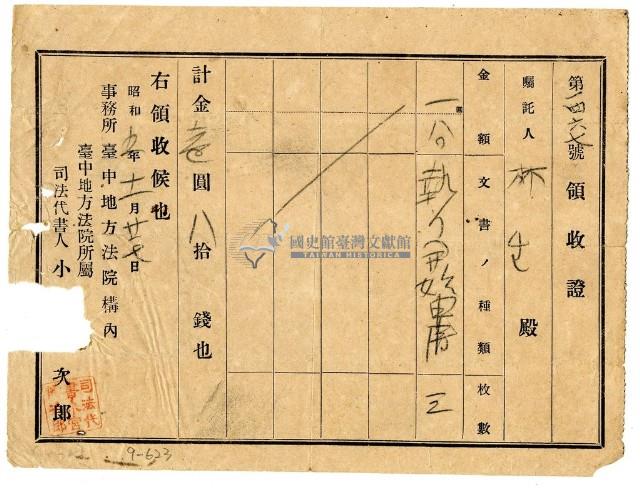 第一四六七號領收證
囑託人 林 生 殿
金額 文書ノ種類 枚數
圓
一八〇 執行開始申請 三
計金壱圓八拾 錢也
右領收候也
昭和五年十一月廿七日
事務所 臺中地方法院構內
臺中地方法院所屬
司法代書人 小 次郎
國史館臺灣文獻館
TAIWAN HISTORICA
9-623